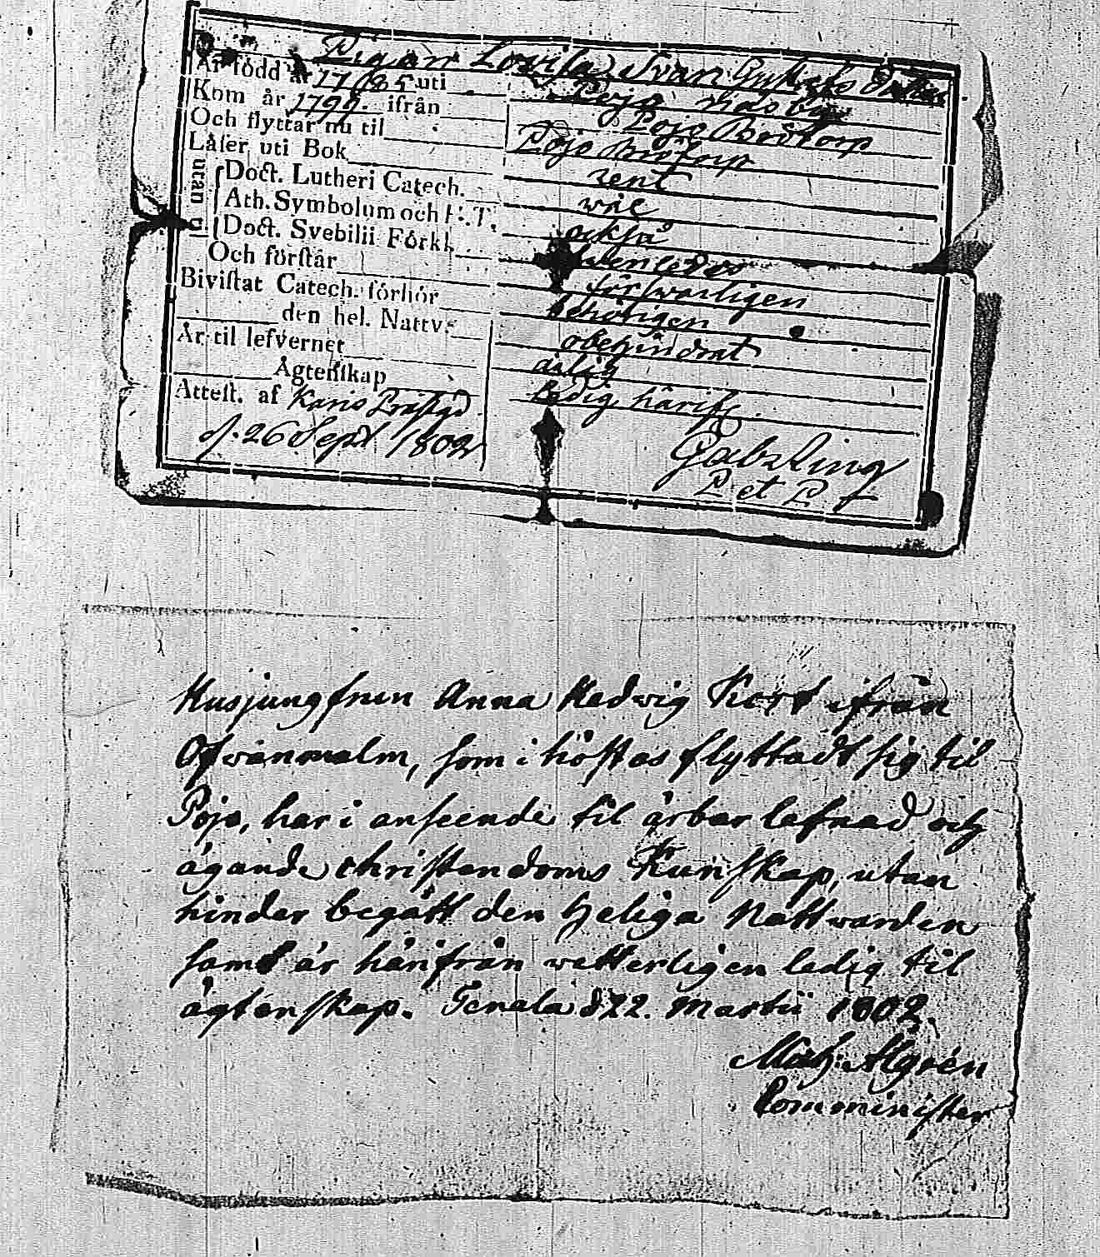 Pigan Lovisa Svan Gustafs
Är född år 1785 uti Pojo
Kom år 1799. ifrån Pojo Brödtorp
Och flyttar nu til Pojo Brödtorp
Låser uti Bok rent
utan
Doct. Lutheri Catech. wäl
Ath. Symbolum och H. T. också
Doct. Svebilii Förkl.
Och förstår försvarligen
Bivistat Catech. förhör behörigen
den hel. Nattv. obehindrat
Är til lefvernet ärlig
Ägtenskap ledig härifr
Attest. af Karis Prästgd
d. 26 Sept 1802
P et P
Husjungfrun Anna Hedwig Kort ifrån
Ofvanmalm, som i höstas flyttadt sig til
Pojo, har i anseende til ärbar lefnad och
ägande christendoms Kunskap, utan
hinder begått den Heliga Nattwarden
samt är härifrån wetterligen ledig til
ägtenskap. Tenala d 22. Martii 1802.
Math. Algrén
Comminister